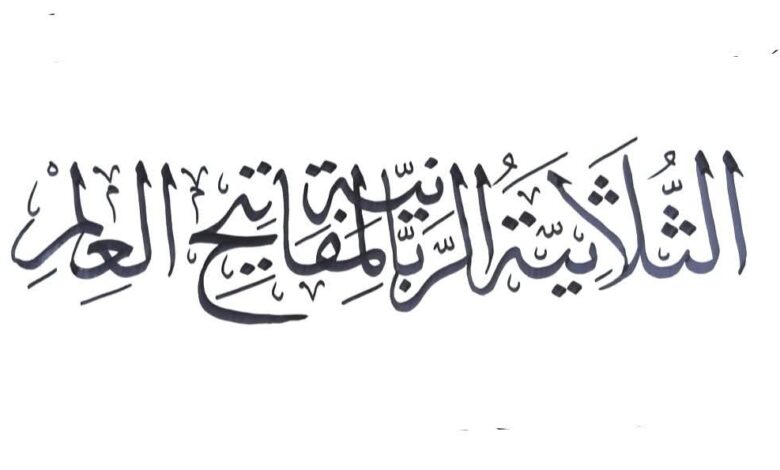 الثُّلَاثِيَّةُ الرَّبَّانِيَّة لِمَفَاتِيحِ العِلمِ